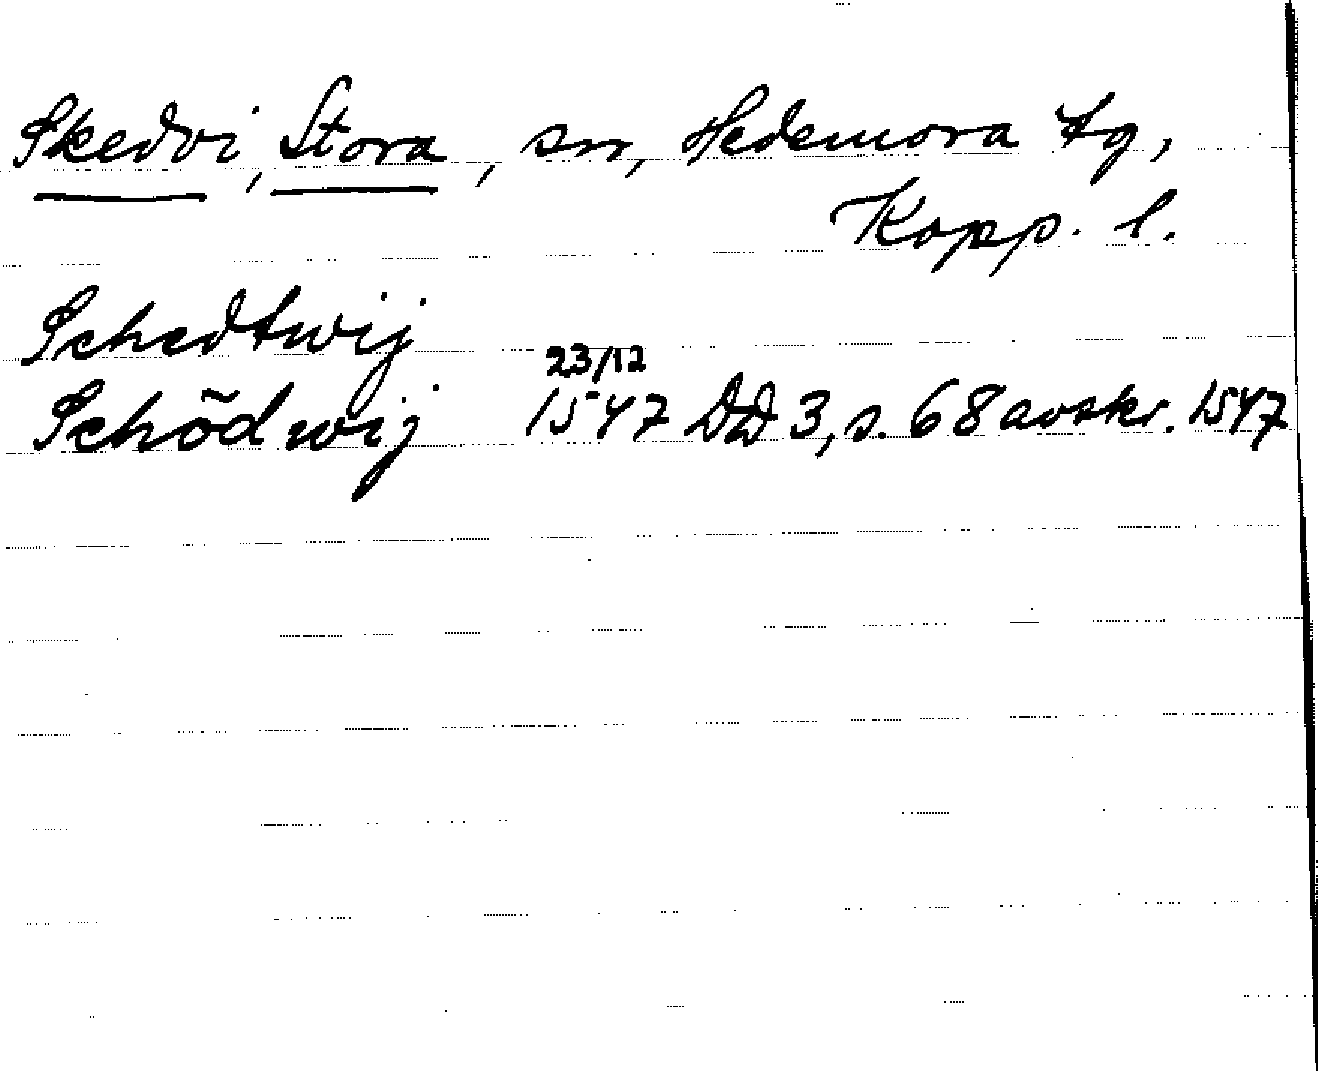 Skedvi, Stora, sn, Hedemora tg,
Kopp. l.
Schedtwij
Schödwij 23/12 1547 DD 3, s. 68 avskr. 1547